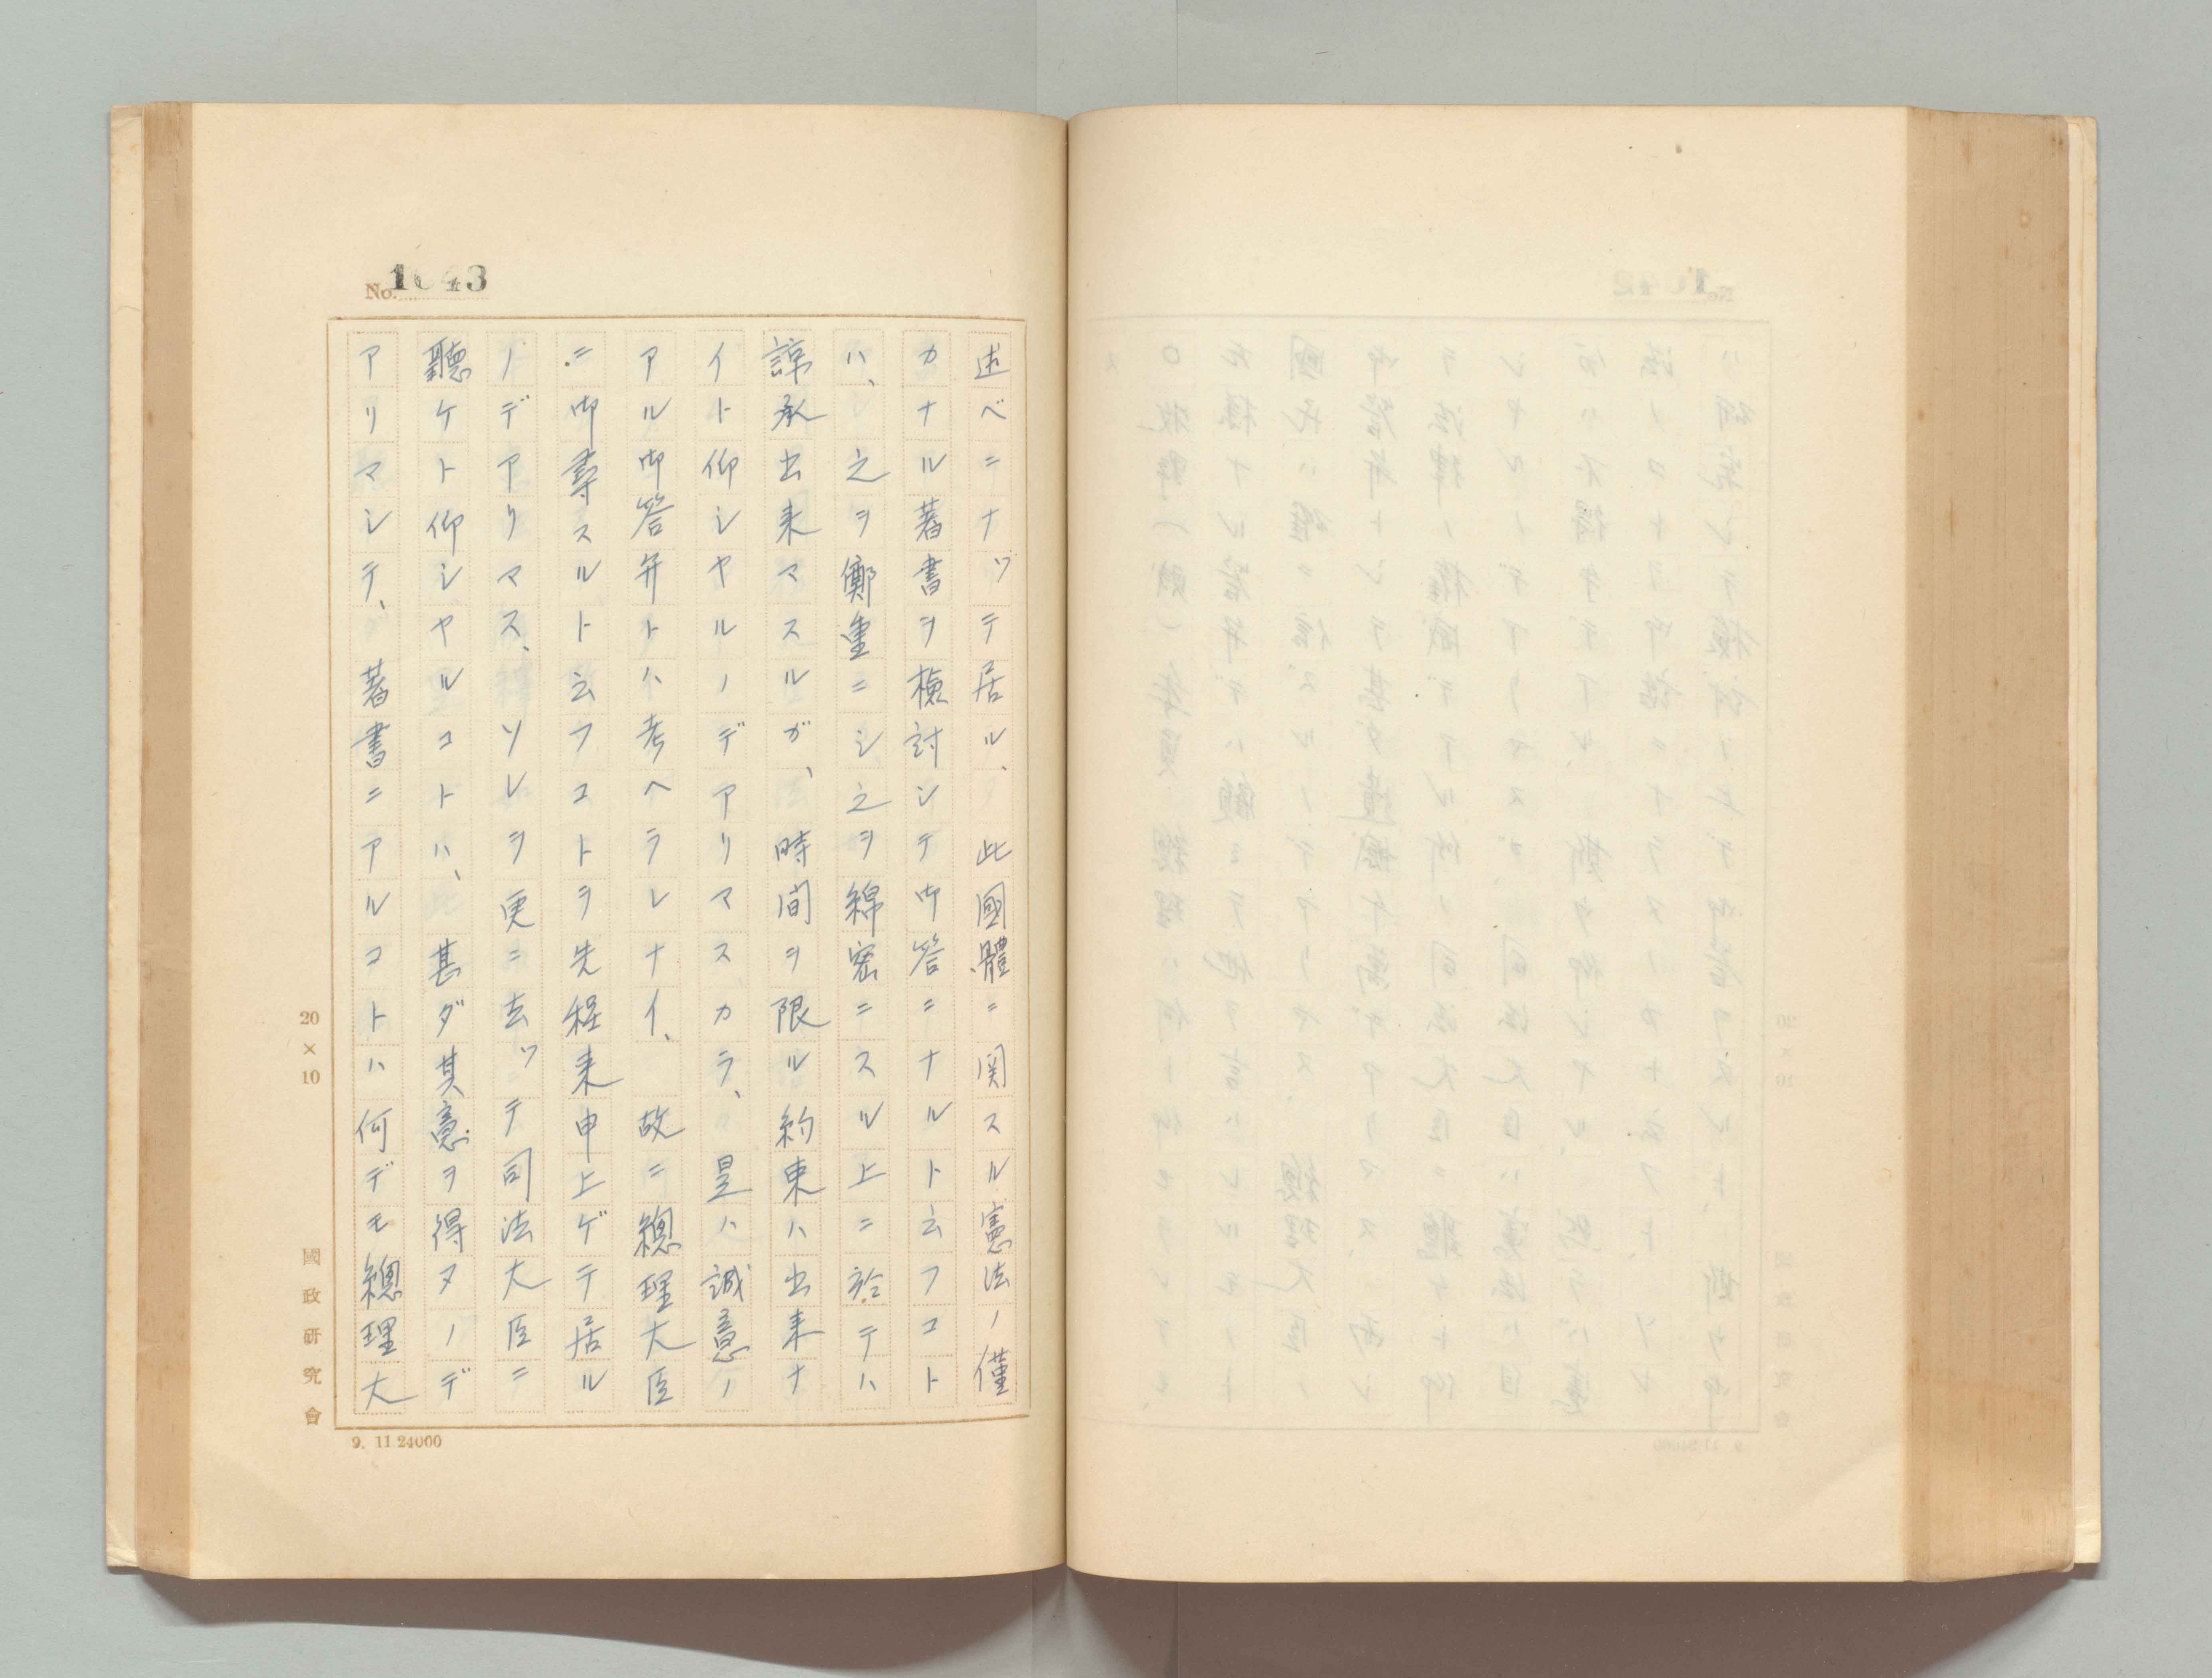 No. 1043
述ベニナッテ居ル、此國體ニ関スル憲法ノ僅
カナル著書ヲ檢討シテ御答ニナルト云フコト
ハ、之ヲ鄭重ニシ之ヲ綿密ニスル上ニ於テハ
諒承出来マスルガ、時間ヲ限ル約束ハ出来ナ
イト仰シヤルノデアリマスカラ、是ハ誠意ノ
アル御答弁トハ考ヘラレナイ、故ニ總理大臣
ニ御尋スルト云フコトヲ先程来申上ゲテ居ル
ノデアリマス、ソレヲ更ニ去ッテ司法大臣ニ
聽ケト仰シヤルコトハ、甚ダ其意ヲ得ヌノデ
アリマシテ、著書ニアルコトハ何デモ總理大
20×10
國政研究會
9. 11.24000